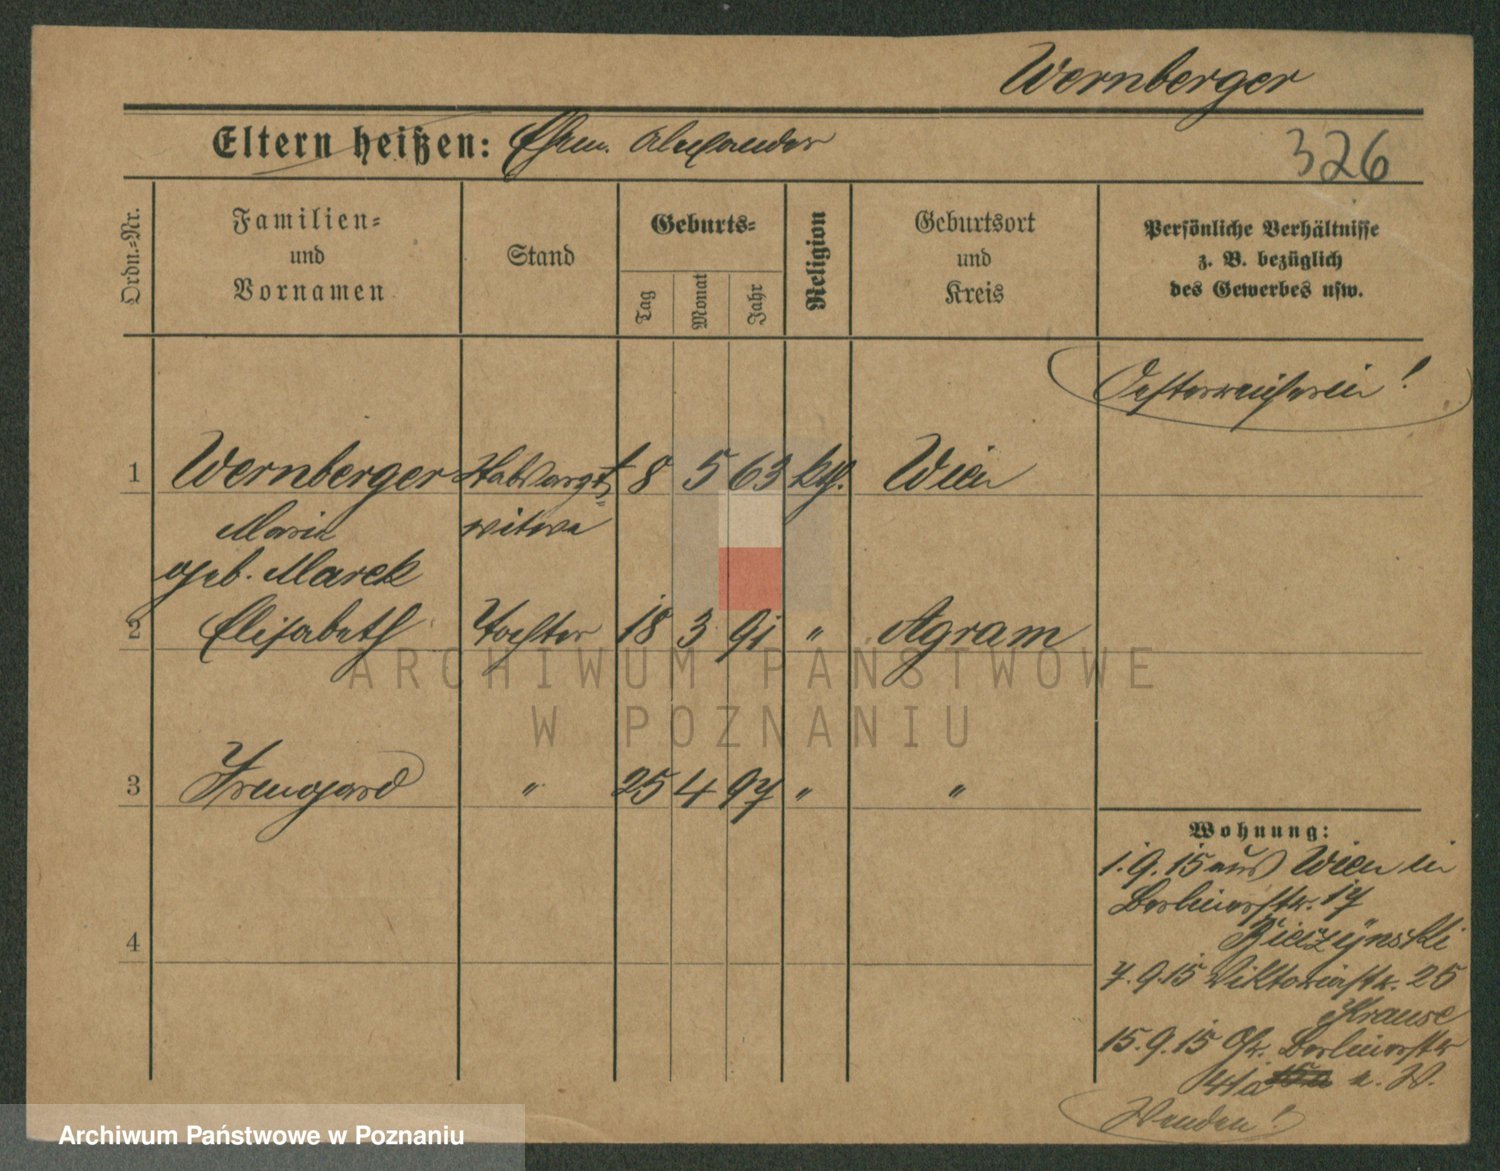 Wernberger
Eltern heißen: Ehem. Alexander
326
Ordn.-Nr.
Familien-
und
Vornamen
Stand
Geburts-
Tag
Monat
Jahr
Religion
Geburtsort
und
Kreis
Persönliche Verhältnisse
z. B. bezüglich
des Gewerbes usw.
Oesterreicherin!
1 Wernberger Stabsarzt 8 5 63 kth. Wien
Maria witwe
geb. Marek
2 Elisabeth Tochter 18 3 91 " Agram
3 Irmgard " 25 4 97 " "
4
Wohnung:
1.9.15 aus Wien in
Berlinerstr. 17
7.9.15 Viktoriastr. 25
Krause
15.9.15 Gr. Berlinerstr
41a b. W.
Wenden!
ARCHIWUM PAŃSTWOWE
W POZNANIU
Archiwum Państwowe w Poznaniu